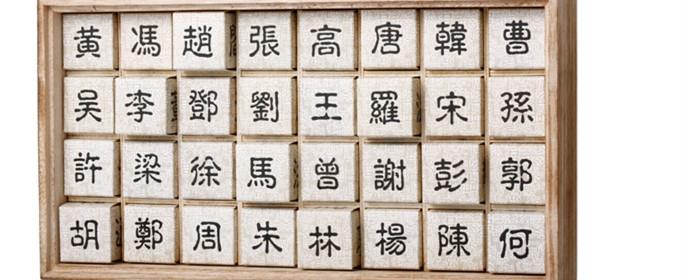 黃馮趙張高唐韓曹
吴李鄧劉王羅宋孫
許梁徐馬曾謝彭郭
胡鄭周朱林楊陳何